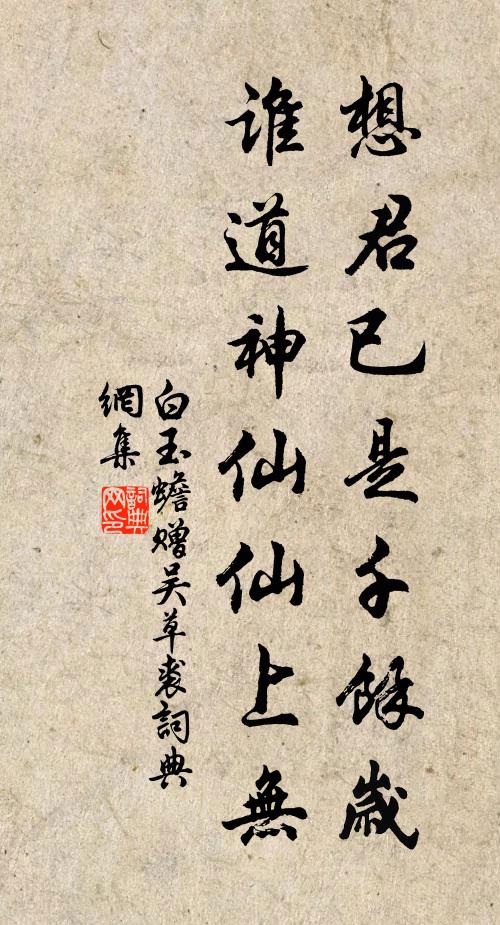 想君已是千餘歲
誰道神仙仙上無
白玉蟾贈吴草裘詞典
網集
詞典
网印